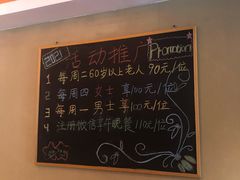 2021 活动推广 Promotion
1 每周二60岁以上老人 90元/位
2 每周四 女士 享100元/位
3 每周一 男士 享100元/位
4 注册微信享午晚餐 110元/位